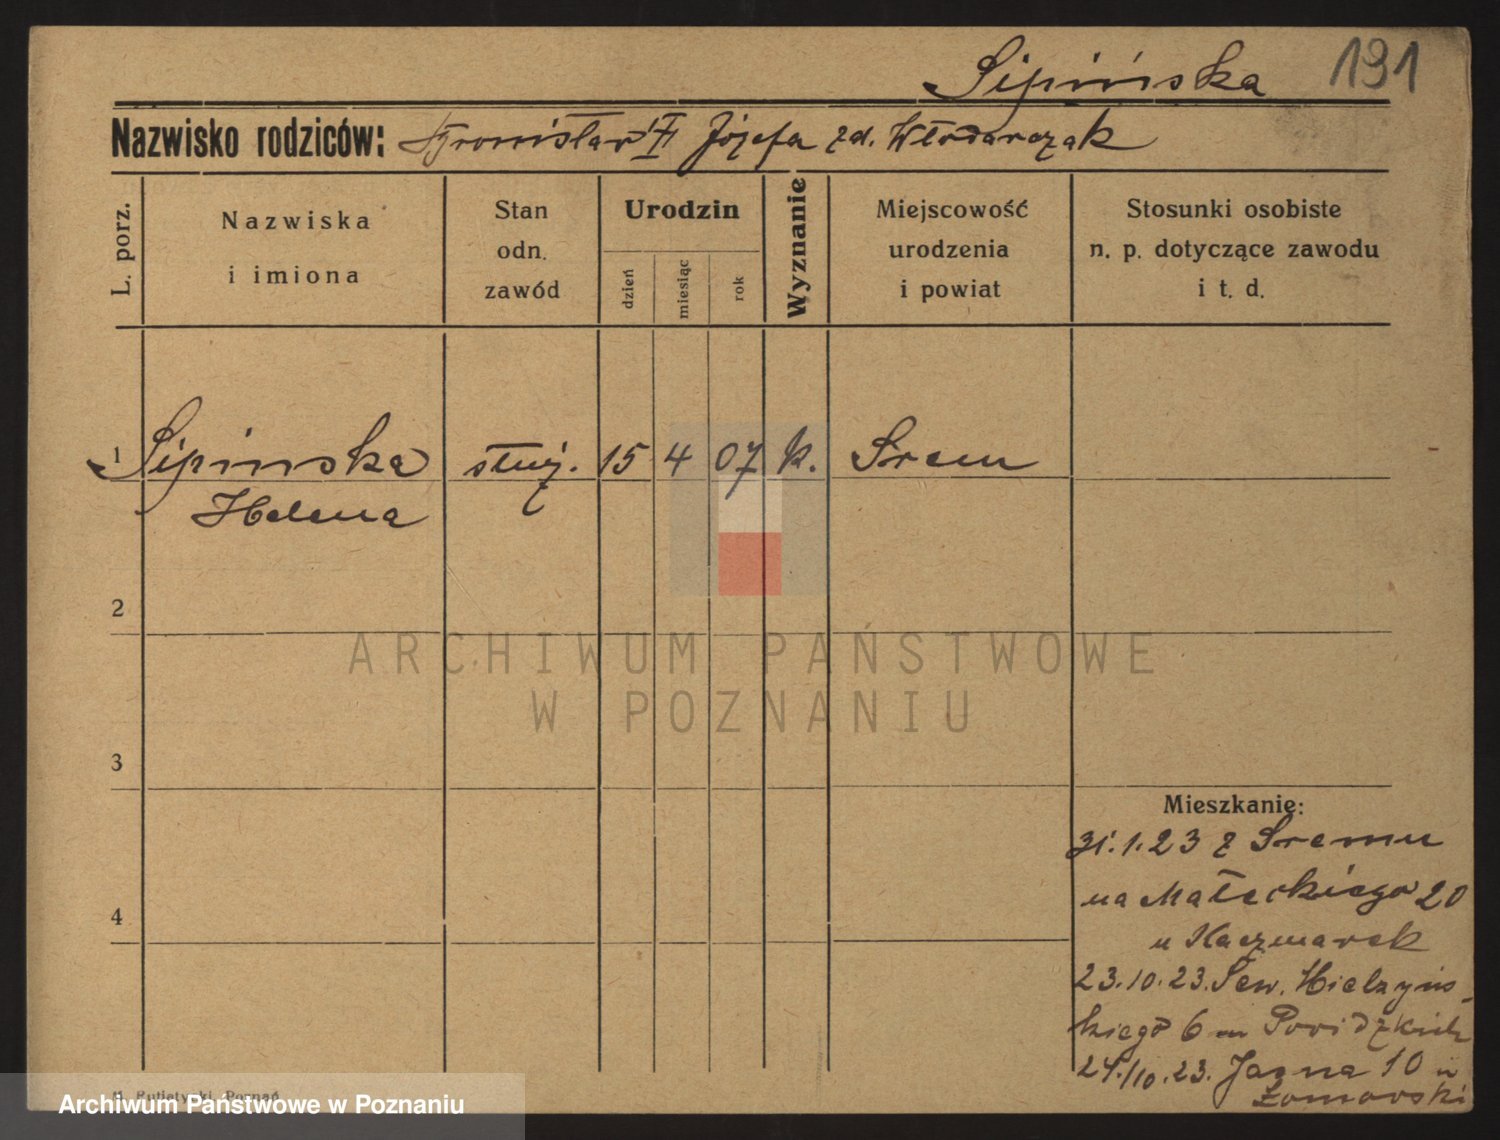 Sipińska 191
Nazwisko rodziców: Bronisław i Józefa zd. Włodarczak
L. porz.
Nazwiska
i imiona
Stan
odn.
zawód
Urodzin
dzień
miesiąc
rok
Wyznanie
Miejscowość
urodzenia
i powiat
Stosunki osobiste
n. p. dotyczące zawodu
i t. d.
1 Sipinska służ. 15 4 07 k. Śrem
Helena
2
ARCHIWUM PAŃSTWOWE
W POZNANIU
3
Mieszkanie:
31.1.23 z Śremu
na Małeckiego 20
4
u Kaczmarek
23.10.23. Sew. Mielzyńs-
kiego 6
24./10.23. Jasna 10 u
Łomowski
Poznań
Archiwum Państwowe w Poznaniu